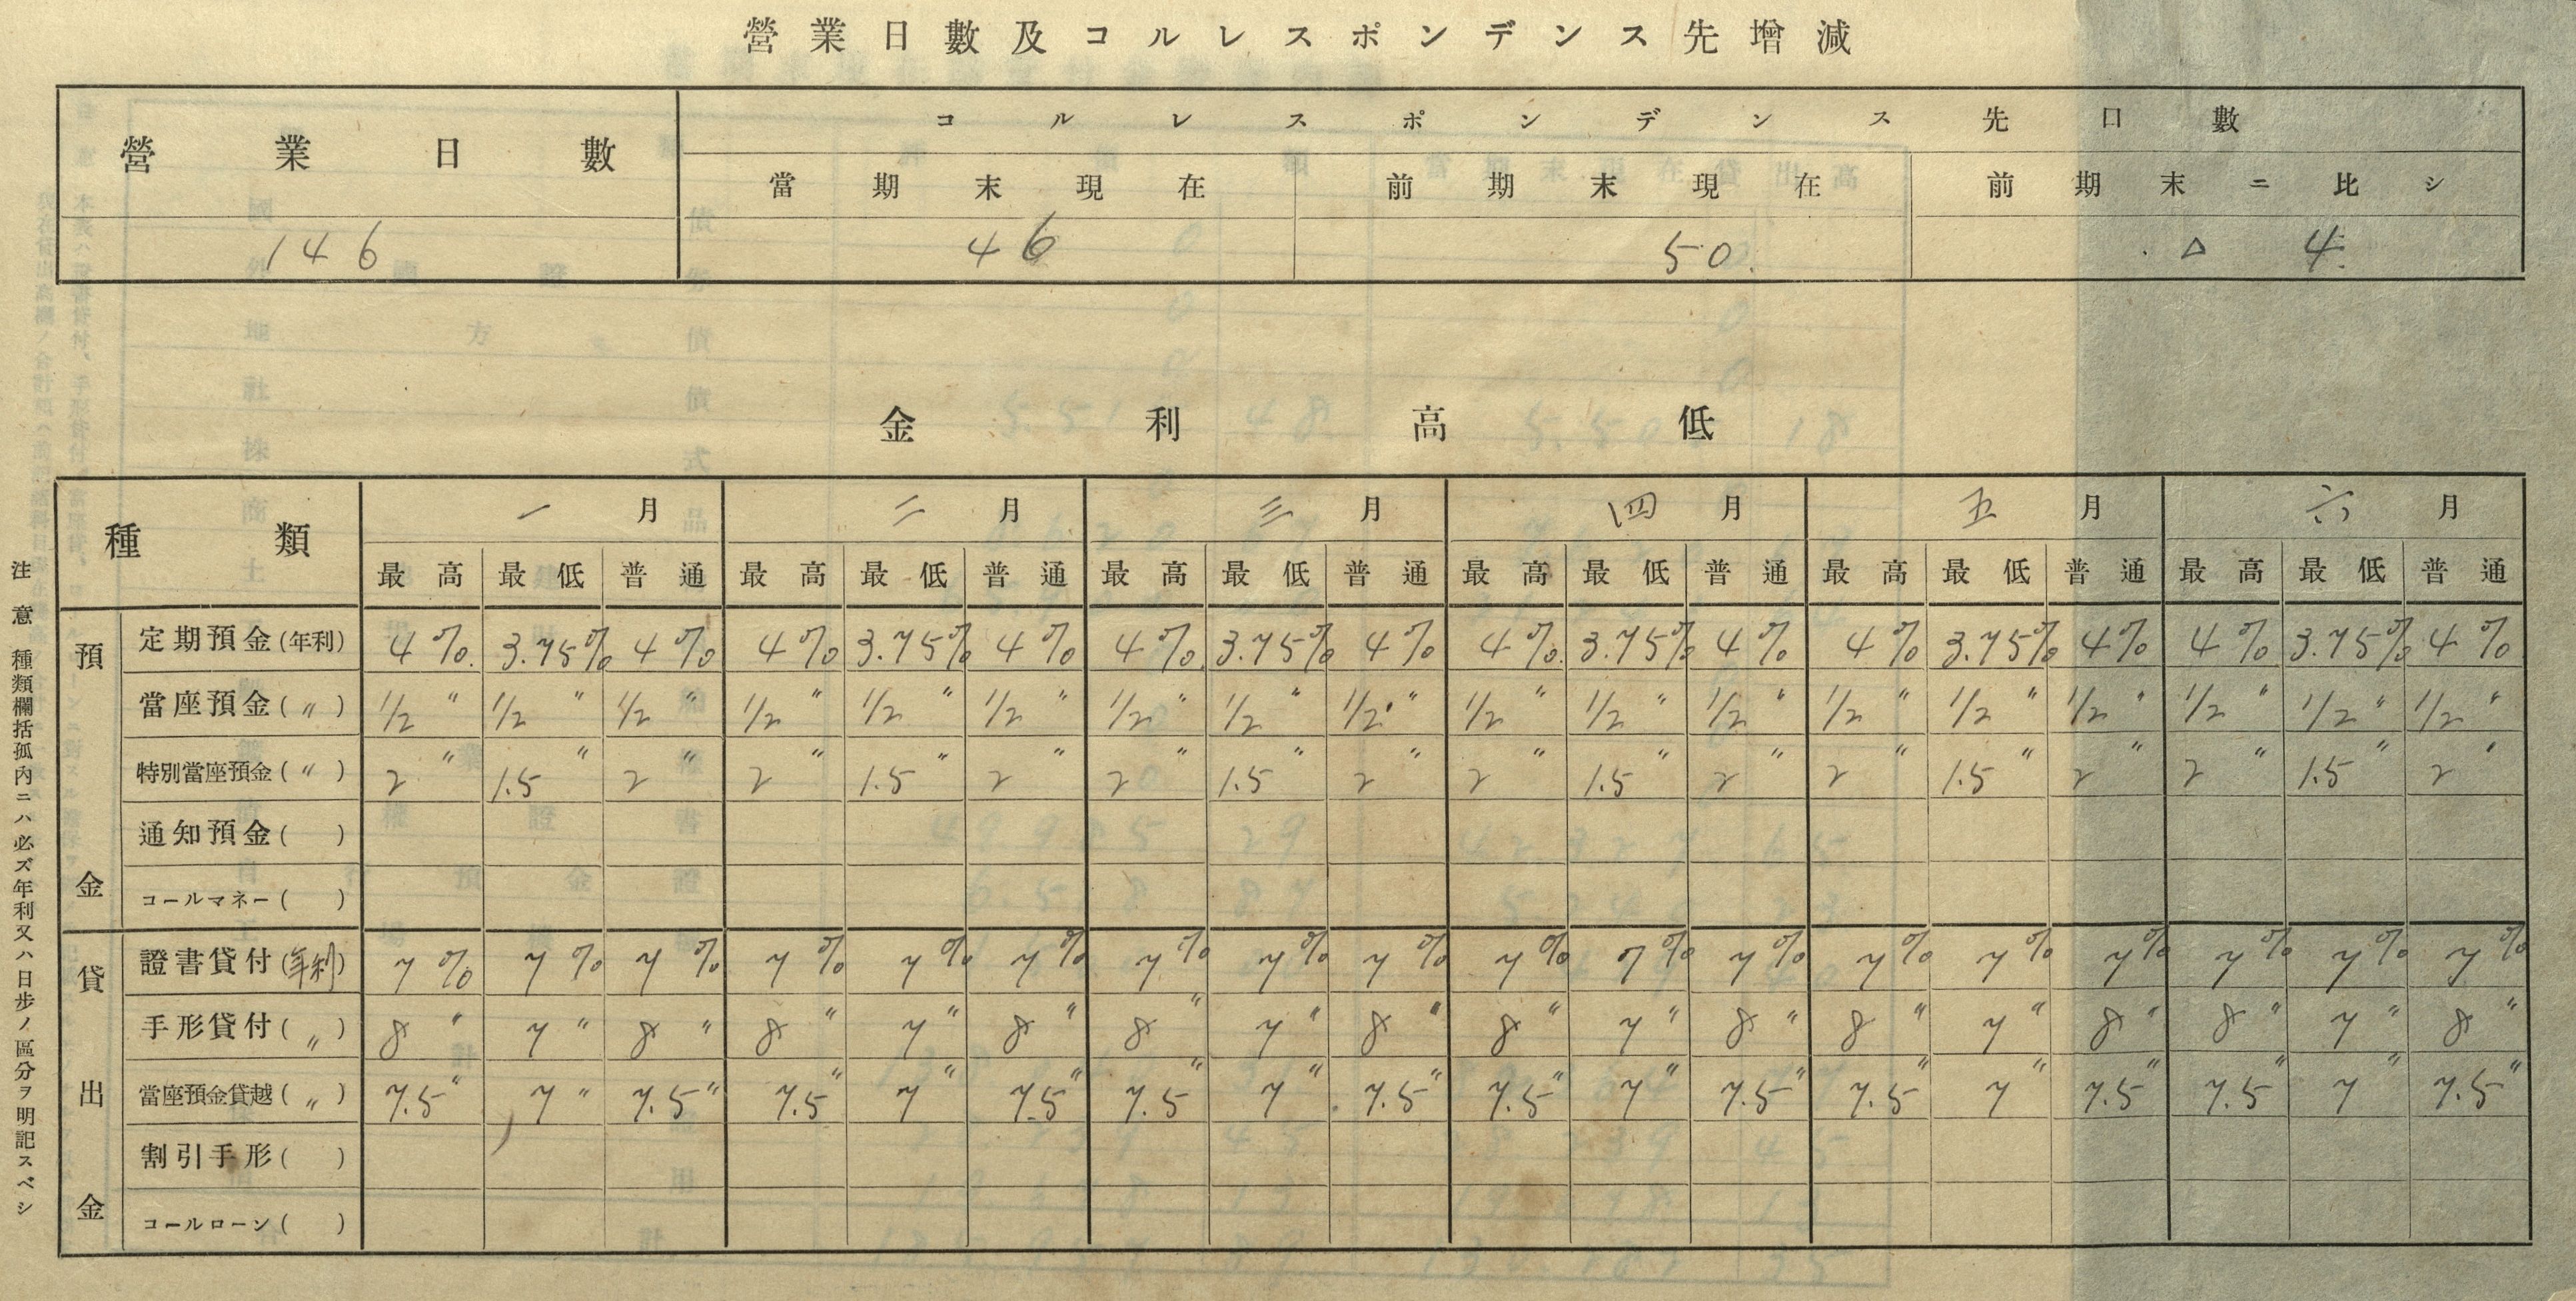 營業日數及コルレスポンデンス先增減
營業日數 コルレスポンデンス先口數
當期末現在 前期末現在 前期末ニ比シ
146 46 50. △ 4
金利高低
種類 一月 二月 三月 四月 五月 六月
最高 最低 普通 最高 最低 普通 最高 最低 普通 最高 最低 普通 最高 最低 普通 最高 最低 普通
預金
定期預金(年利) 4% 3.75% 4% 4% 3.75% 4% 4% 3.75% 4% 4% 3.75% 4% 4% 3.75% 4% 4% 3.75% 4%
當座預金(〃) 1/2〃 1/2〃 1/2〃 1/2〃 1/2〃 1/2〃 1/2〃 1/2〃 1/2〃 1/2〃 1/2〃 1/2〃 1/2〃 1/2〃 1/2〃 1/2〃 1/2〃 1/2〃
特別當座預金(〃) 2〃 1.5〃 2〃 2〃 1.5〃 2〃 2〃 1.5〃 2〃 2〃 1.5〃 2〃 2〃 1.5〃 2〃 2〃 1.5〃 2〃
通知預金( )
コールマネー( )
貸出金
證書貸付(年利) 7% 7% 7% 7% 7% 7% 7% 7% 7% 7% 7% 7% 7% 7% 7% 7% 7% 7%
手形貸付(〃) 8〃 7〃 8〃 8〃 7〃 8〃 8〃 7〃 8〃 8〃 7〃 8〃 8〃 7〃 8〃 8〃 7〃 8〃
當座預金貸越(〃) 7.5〃 7〃 7.5〃 7.5〃 7〃 7.5〃 7.5〃 7〃 7.5〃 7.5〃 7〃 7.5〃 7.5〃 7〃 7.5〃 7.5〃 7〃 7.5〃
割引手形( )
コールローン( )
注意 種類欄括孤内ニハ必ズ年利又ハ日步ノ區分ヲ明記スベシ